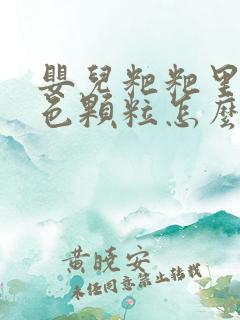 嬰兒粑粑里
色顆粒怎麼
黄曉安
未经同意禁止转载